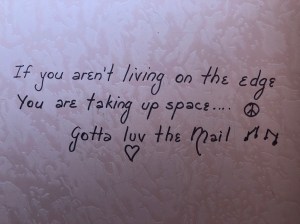 If you aren't living on the edge
You are taking up space....
Gotta luv the Mail